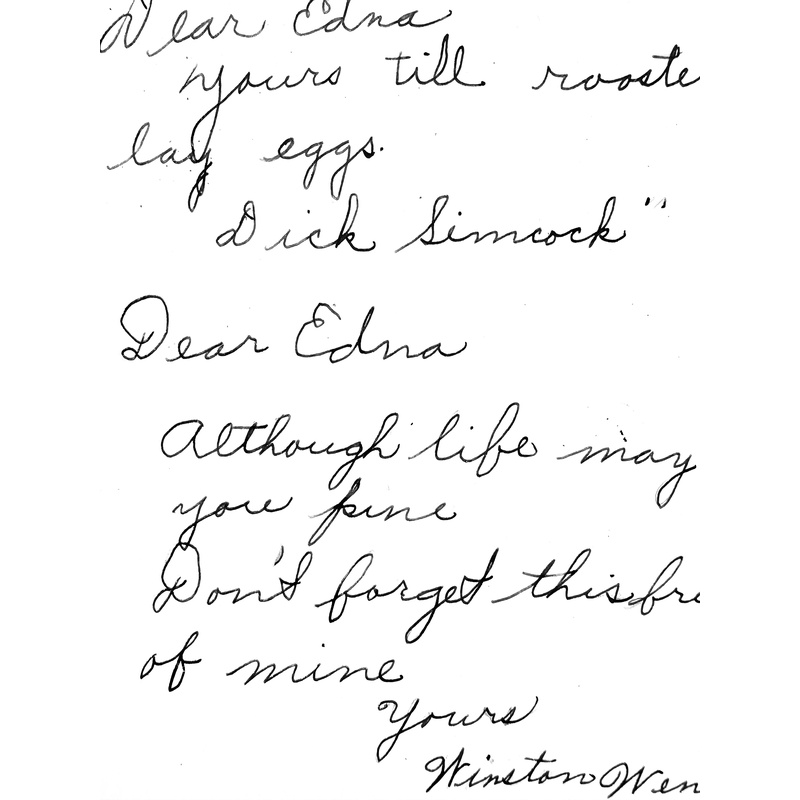 Dear Edna
Yours till rooste
lay eggs.
Dick Simcock"
Dear Edna
Although life may
you pine
Don't forget this fri
of mine
Yours
Winston Wen